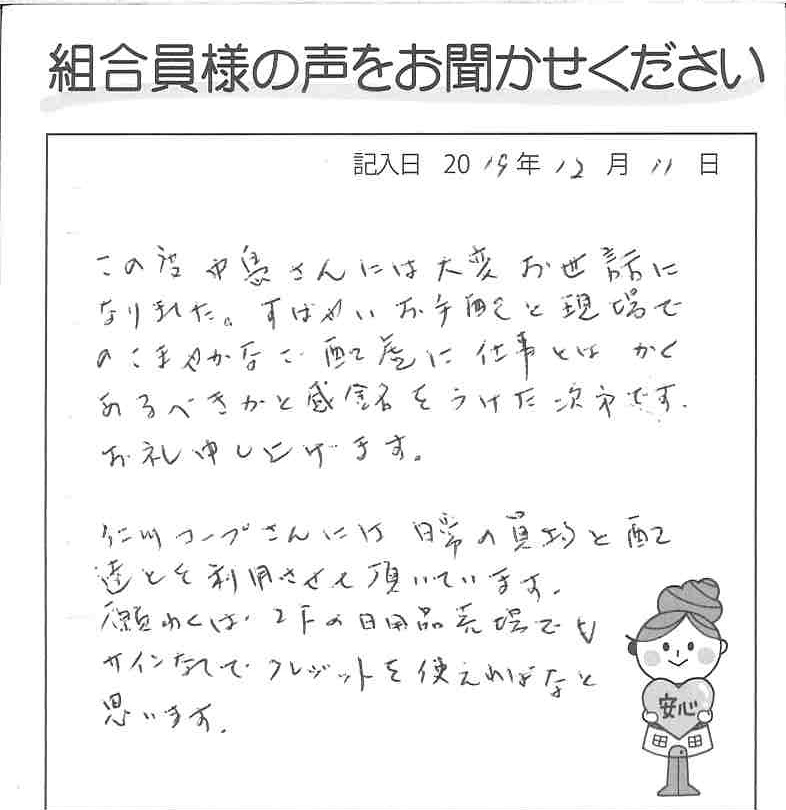 組合員様の声をお聞かせください
記入日 2019年12月11日
この度中島さんには大変お世話に
なりました。すばやいお手配と現場で
のこまやかなご配慮に仕事とは かく
あるべきかと感銘をうけた次第です.
お礼申し上げます。
仁川コープさんには 日常の買物と配
達とを利用させて頂いています.
願わくは、2Fの日用品売場でも
サインなしで クレジットを使えればなと
思います.
安心